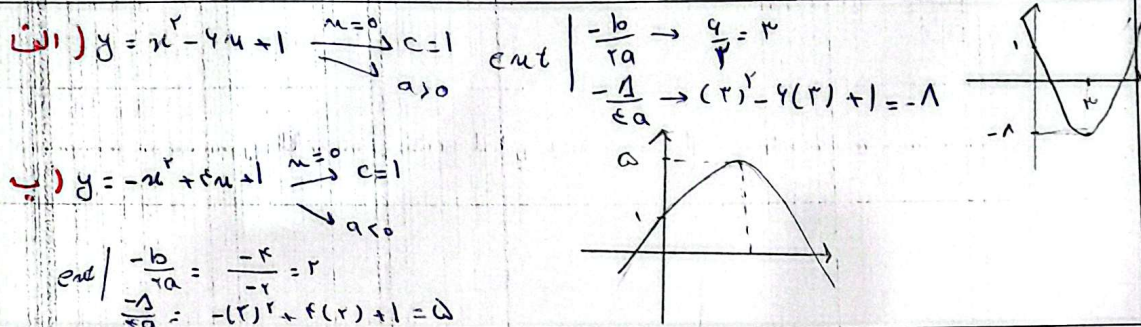 الف) y = x² - ۶x + ۱ x=۰ → c=۱ a>۰ ext | -b/۲a → ۶/۲ = ۳
-Δ/۴a → (۳)² - ۶(۳) + ۱ = -۸
۱ ۳ -۸
ب) y = -x² + ۴x + ۱ x=۰ → c=۱ a<۰
ext | -b/۲a = -۴/-۲ = ۲
-Δ/۴a = -(۲)² + ۴(۲) + ۱ = ۵
۵ ۱